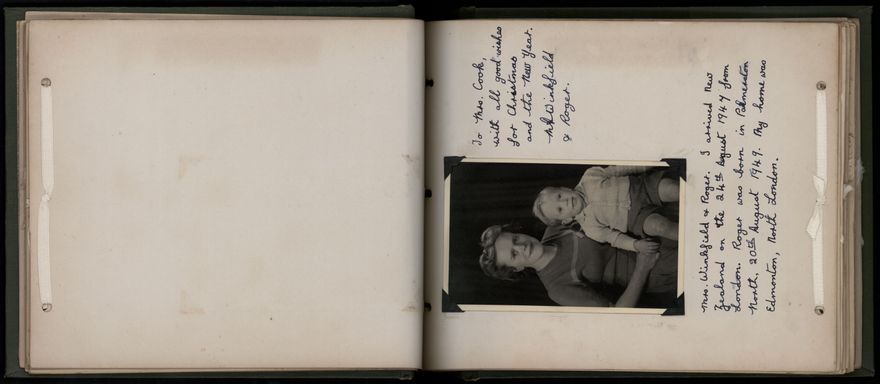 To Mrs. Cook,
with all good wishes
for Christmas
and the New Year.
Winkfield
& Roger.
Mrs. Winkfield & Roger. I arrived New
Zealand on the 24th August 1947 from
London. Roger was born in Palmerston
North, 20th August 1949. My home was
Edmonton, North London.